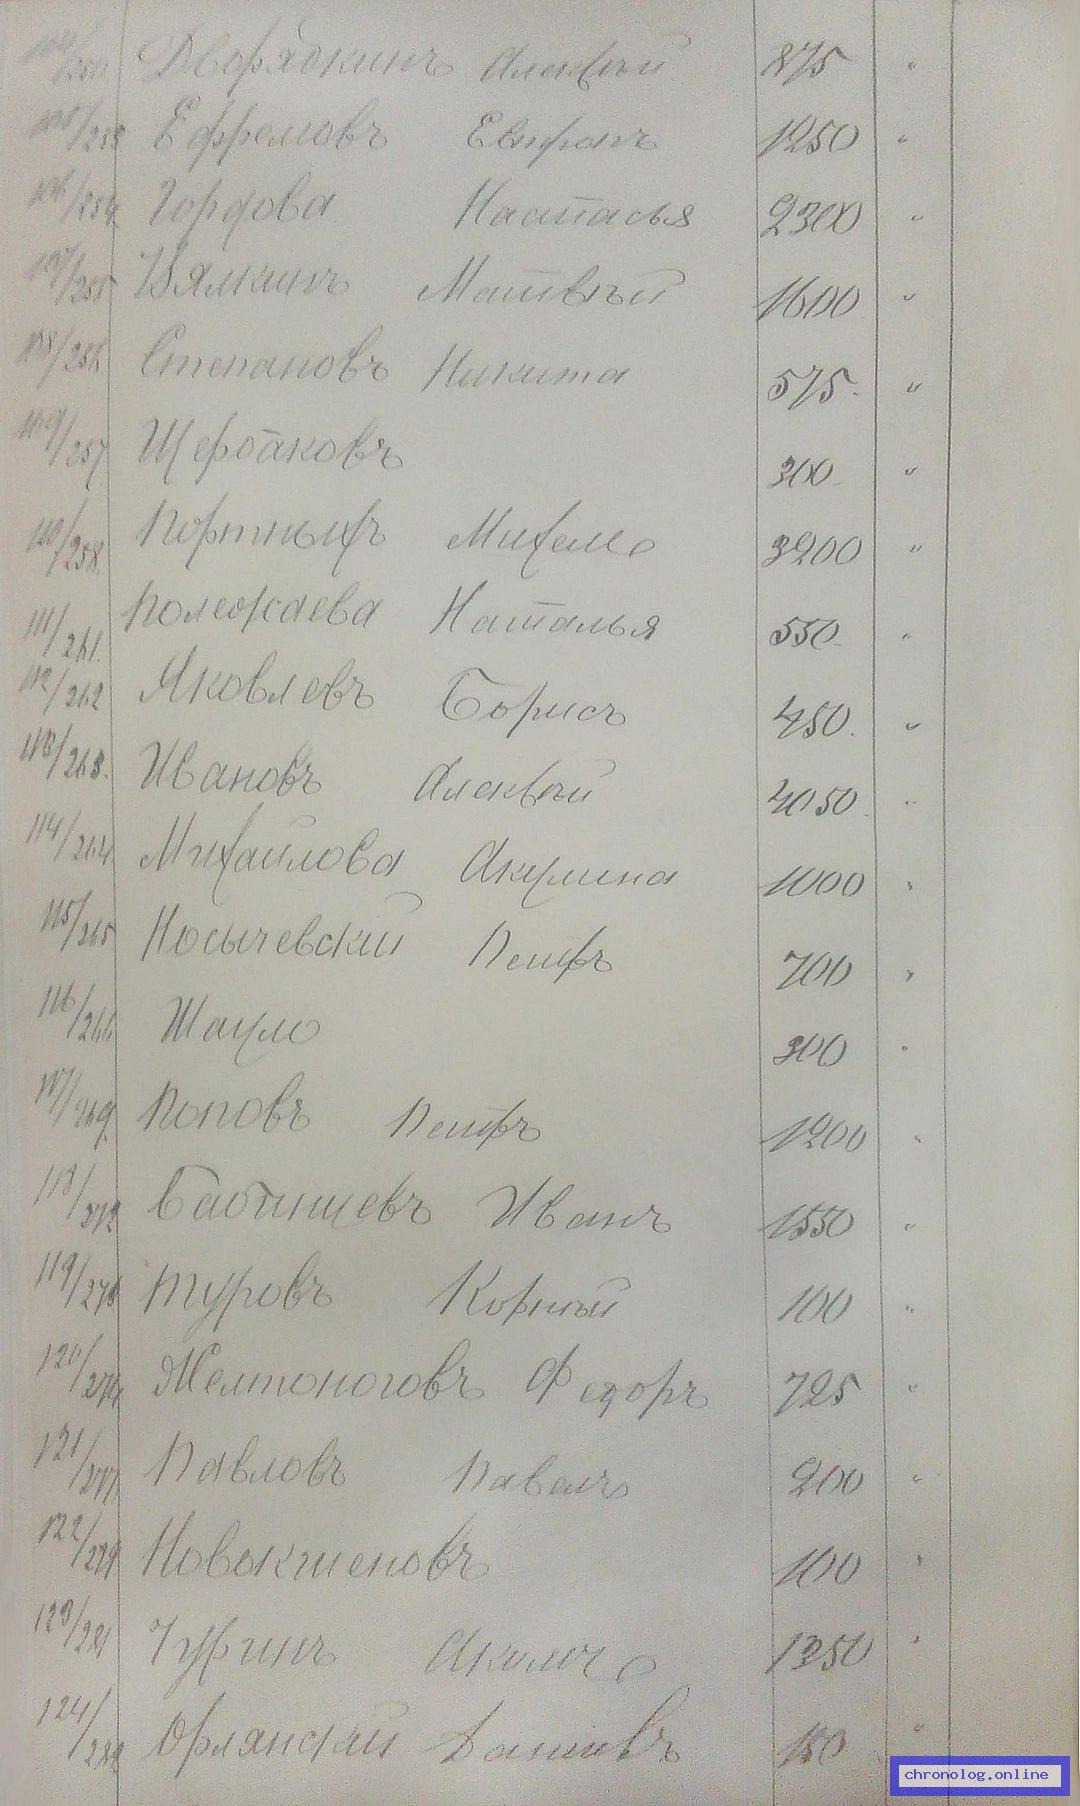 Дворядкинъ Алексѣй 875 "
Ефремовъ 1250 "
Гордова Настасья 2300 "
Вялкинъ Матвѣй 1600 "
108/256 Степановъ Никита 575 "
109/257 Щербаковъ 300 "
110/258 Портныхъ Михаилъ 3200 "
111/261 Полежаева Наталья 550 "
112/262 Яковлевъ Борисъ 450 "
113/263 Ивановъ Алексѣй 4050 "
114/264 Михайлова Акулина 1000 "
115/265 Носычевскій Петръ 700 "
116/266 Шауло 300 "
117/269 Поповъ Петръ 1200 "
118/272 Бабинцевъ Иванъ 1550 "
119/273 Туровъ Корнѣй 100 "
120/274 Желтоноговъ Федоръ 725 "
121/277 Павловъ Павелъ 200 "
122/279 Новокшеновъ 100 "
123/281 Чургинъ 1350 "
Орлянскій 150 "
chronolog.online